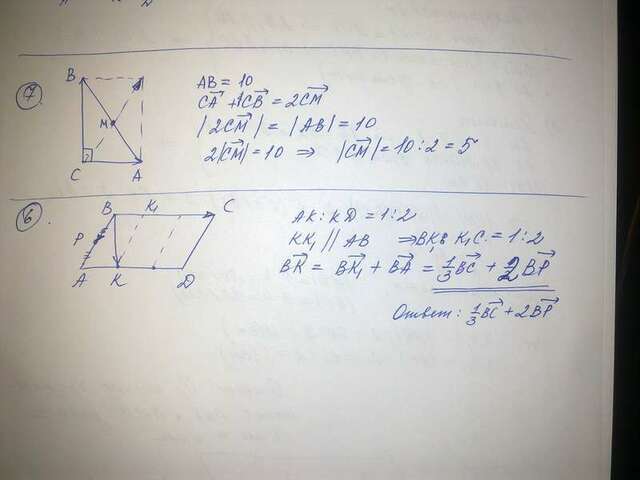 7
B
M
C
A
AB = 10
CA + CB = 2CM
|2CM| = |AB| = 10
2|CM| = 10 ⇒ |CM| = 10 : 2 = 5
6
B K₁ C
P
A K D
AK : KD = 1 : 2
KK₁ // AB ⇒ BK₁ : K₁C = 1 : 2
BK = BK₁ + BA = 1/3 BC + 2BP
Ответ: 1/3 BC + 2BP